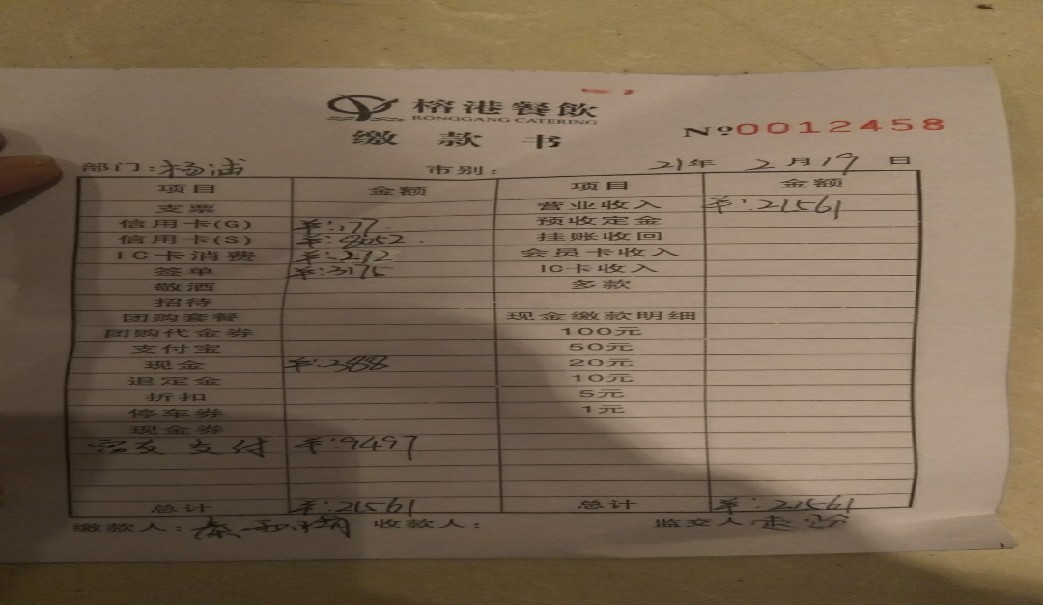 榕港餐飲
RONGGANG CATERING
缴款书
Nº0012458
部门:杨浦 市别: 21年 2月19日
项目 金额 项目 金额
支票 营业收入 ¥:21561
信用卡(G) ¥:177 预收定金
信用卡(S) ¥:8052 挂账收回
IC卡消费 ¥:272 会员卡收入
签单 ¥:3175 IC卡收入
敬酒 多款
招待
团购套餐 现金缴款明细
团购代金券 100元
支付宝 50元
现金 ¥:388 20元
退定金 10元
折扣 5元
停车券 1元
现金券
支付 ¥:9497
总计 ¥:21561 总计 ¥:21561
缴款人: 收款人: 监交人